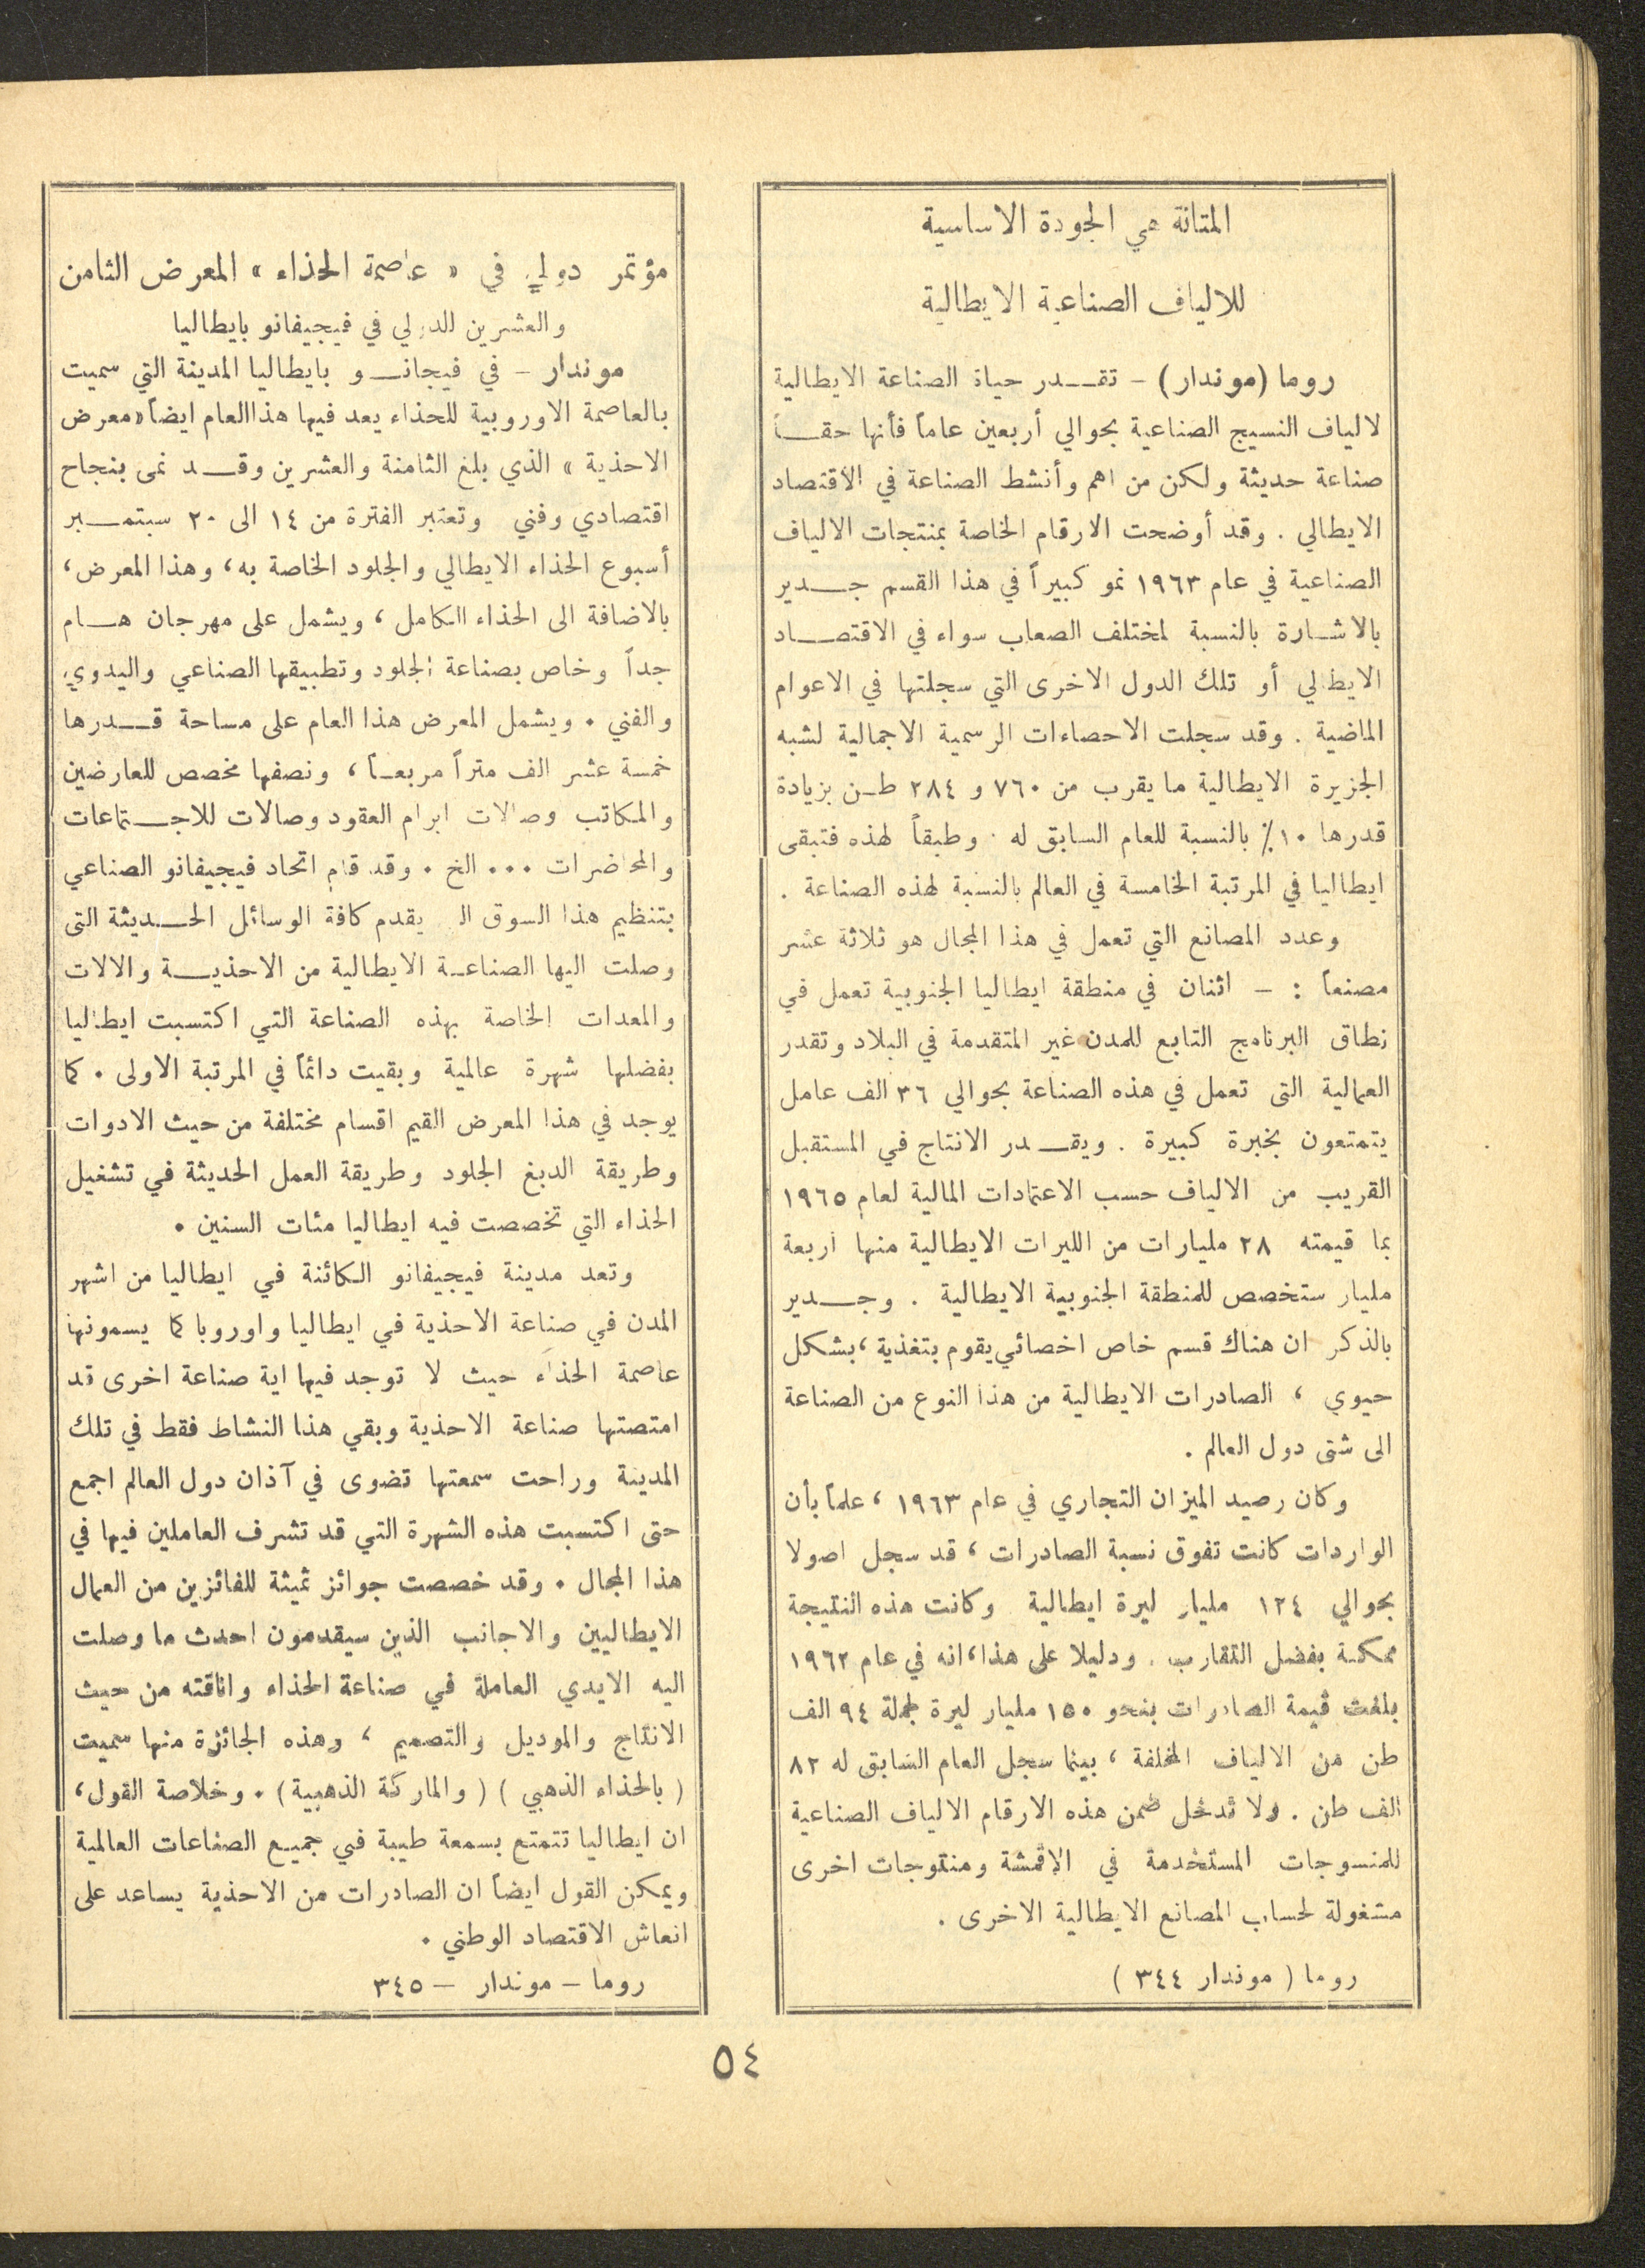 المتانة هي الجودة الاساسية
للالياف الصناعية الايطالية
روما (موندار) – تقـــدر حياة الصناعة الايطالية
لالياف النسيج الصناعية بحوالي أربعين عاماً فأنها حقـــاً
صناعة حديثة ولكن من اهم وأنشط الصناعة في الاقتصاد
الايطالي . وقد أوضحت الارقام الخاصة بمنتجات الالياف
الصناعية في عام ١٩٦٣ نمو كبيراً في هذا القسم جـــدير
بالاشـارة بالنسبة لمختلف الصعاب سواء في الاقتصـــاد
الايطالي أو تلك الدول الاخرى التي سجلتها في الاعوام
الماضية . وقد سجلت الاحصاءات الرسمية الاجمالية لشبه
الجزيرة الايطالية ما يقرب من ٧٦٠ و ٢٨٤ طـن بزيادة
قدرها ١٠٪ بالنسبة للعام السابق له . وطبقاً لهذه فتبقى
ايطاليا في المرتبة الخامسة في العالم بالنسبة لهذه الصناعة .
وعدد المصانع التي تعمل في هذا المجال هو ثلاثة عشر
مصنعاً : – اثنان في منطقة ايطاليا الجنوبية تعمل في
نطاق البرنامج التابع للمدن غير المتقدمة في البلاد وتقدر
العمالية التى تعمل في هذه الصناعة بحوالي ٣٦ الف عامل
يتمتعون بخبرة كبيرة . ويقـــدر الانتاج في المستقبل
القريب من الالياف حسب الاعتمادات المالية لعام ١٩٦٥
بما قيمته ٢٨ مليارات من الليرات الايطالية منها اربعة
مليار ستخصص للمنطقة الجنوبية الايطالية . وجـــدير
بالذكر ان هناك قسم خاص اخصائي يقوم بتغذية ، بشكل
حيوي ، الصادرات الايطالية من هذا النوع من الصناعة
الى شتى دول العالم .
وكان رصيد الميزان التجاري في عام ١٩٦٣ ، علماً بأن
الواردات كانت تفوق نسبة الصادرات ، قد سجل اصولا
بحوالي ١٢٤ مليار ليرة ايطالية وكانت هذه النتيجة
ممكنة بفضل التقارب . ودليلا على هذا ، انه في عام ١٩٦٢
بلغت قيمة الصادرات بنحو ١٥٠ مليار ليرة لجملة ٩٤ الف
طن من الالياف المختلفة ، بينما سجل العام السابق له ٨٢
الف طن . ولا تدخل ضمن هذه الارقام الالياف الصناعية
للمنسوجات المستخدمة في الاقمشة ومنتوجات اخرى
مشغولة لحساب المصانع الايطالية الاخرى .
روما ( موندار ٣٤٤ )
مؤتمر دولي في « عاصمة الحذاء » المعرض الثامن
والعشرين الدولي في فيجيفانو بايطاليا
موندار – في فيجانـــو بايطاليا المدينة التي سميت
بالعاصمة الاوروبية للحذاء يعد فيها هذا العام ايضاً «معرض
الاحذية » الذي بلغ الثامنة والعشرين وقـــد نمى بنجاح
اقتصادي وفني وتعتبر الفترة من ١٤ الى ٢٠ سبتمـــبر
أسبوع الحذاء الايطالي والجلود الخاصة به ، وهذا المعرض ،
بالاضافة الى الحذاء الكامل ، ويشمل على مهرجان هـــام
جداً وخاص بصناعة الجلود وتطبيقها الصناعي واليدوي
والفني . ويشمل المعرض هذا العام على مساحة قـــدرها
خمسة عشر الف متراً مربعـاً ، ونصفها مخصص للعارضين
والمكاتب وصالات ابرام العقود وصالات للاجـــتماعات
والمحاضرات ... الخ . وقد قام اتحاد فيجيفانو الصناعي
بتنظيم هذا السوق الـ يقدم كافة الوسائل الحـــديثة التى
وصلت اليها الصناعـة الايطالية من الاحذيـــة والالات
والمعدات الخاصة بهذه الصناعة التي اكتسبت ايطاليا
بفضلها شهرة عالمية وبقيت دائماً في المرتبة الاولى . كما
يوجد في هذا المعرض القيم اقسام مختلفة من حيث الادوات
وطريقة الدبغ الجلود وطريقة العمل الحديثة في تشغيل
الحذاء التي تخصصت فيه ايطاليا مئات السنين .
وتعد مدينة فيجيفانو الكائنة في ايطاليا من اشهر
المدن في صناعة الاحذية في ايطاليا واوروبا كما يسمونها
عاصمة الحذاء حيث لا توجد فيها اية صناعة اخرى قد
امتصتها صناعة الاحذية وبقي هذا النشاط فقط في تلك
المدينة وراحت سمعتها تضوى في آذان دول العالم اجمع
حتى اكتسبت هذه الشهرة التي قد تشرف العاملين فيها في
هذا المجال . وقد خصصت جوائز ثميثة للفائزين من العمال
الايطاليين والاجانب الذين سيقدمون احدث ما وصلت
اليه الايدي العاملة في صناعة الحذاء واناقته من حيث
الانتاج والموديل والتصميم ، وهذه الجائزة منها سميت
( بالحذاء الذهبي ) ( والماركة الذهبية ) . وخلاصة القول ،
ان ايطاليا تتمتع بسمعة طيبة في جميع الصناعات العالمية
ويمكن القول ايضاً ان الصادرات من الاحذية يساعد على
انعاش الاقتصاد الوطني .
روما – موندار – ٣٤٥
٥٤